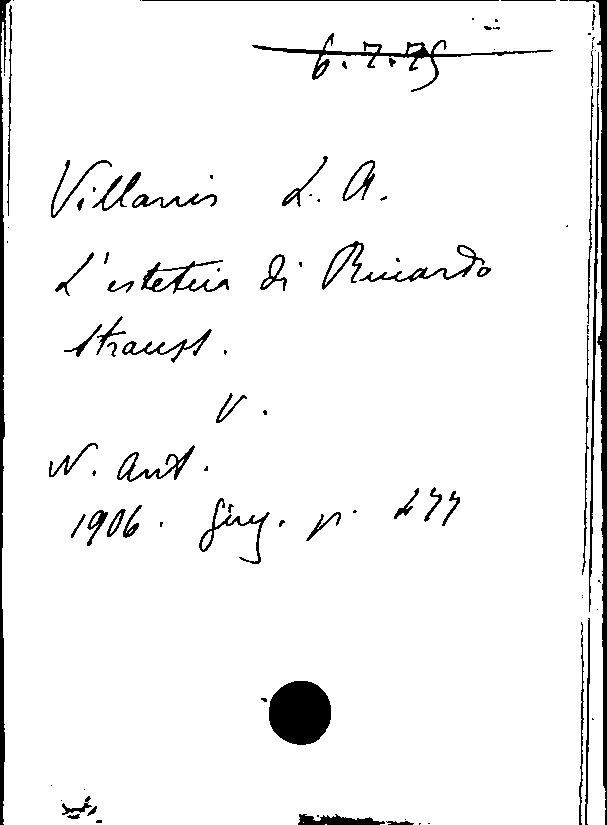 6.7.75
Villanis L. A.
L'estetica di Riccardo
Strauss.
v.
N. Ant.
1906. giug. p. 277